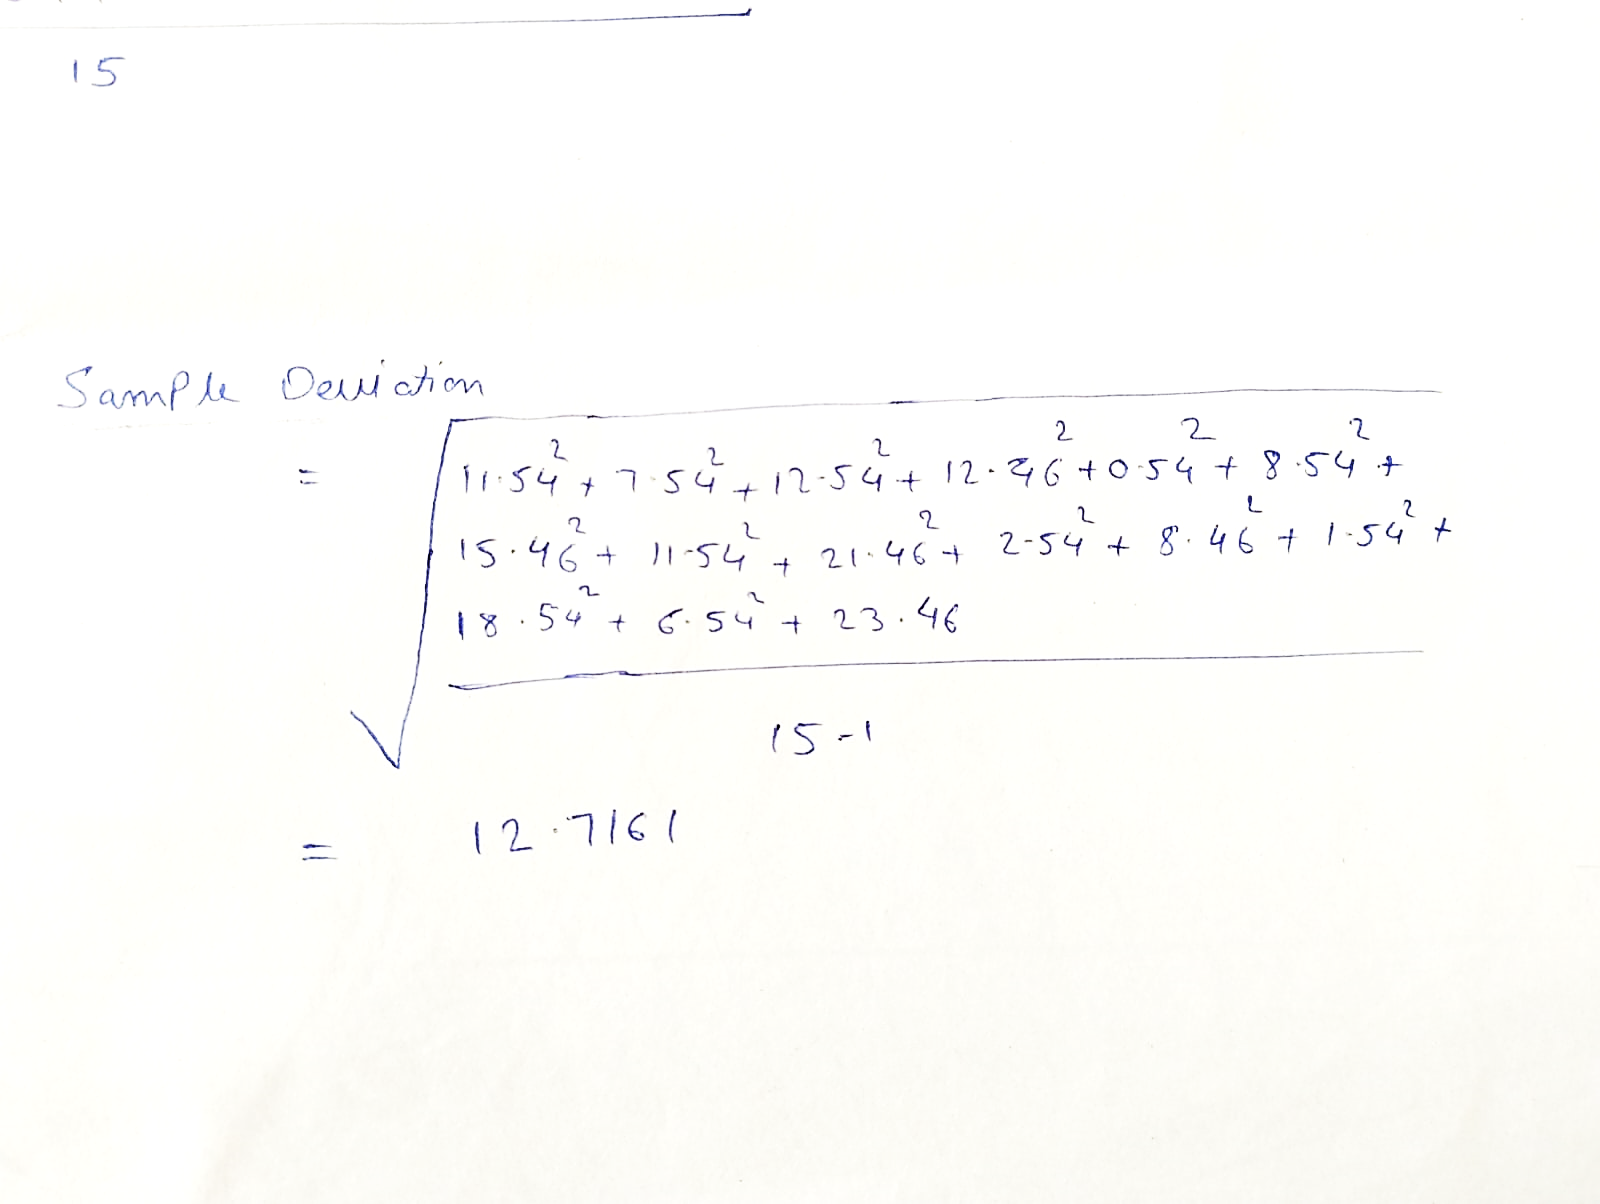 15
Sample Deviation
= √ 11.54² + 7.54² + 12.54² + 12.46² + 0.54² + 8.54² +
15.46² + 11.54² + 21.46² + 2.54² + 8.46² + 1.54² +
18.54² + 6.54² + 23.46
15-1
= 12.7161